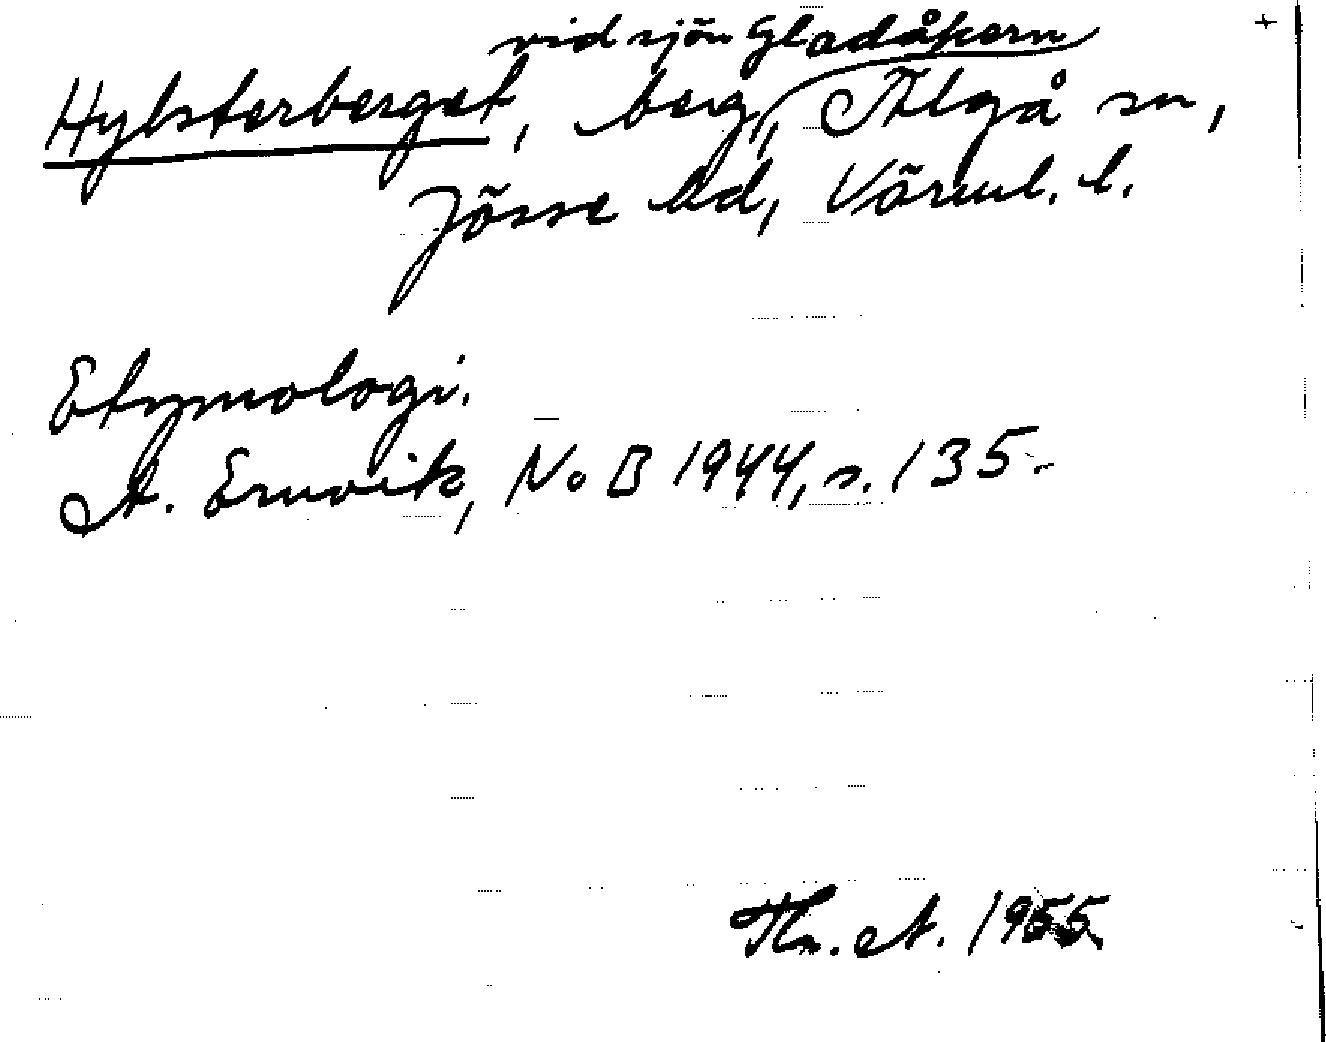 vid sjön Gladåkern
Hylsterberget, berg, Älgå sn,
Jösse hd, Värml. l.
Etymologi.
A. Ernvik, NoB 1944, s. 135.
Thn. A. 1955